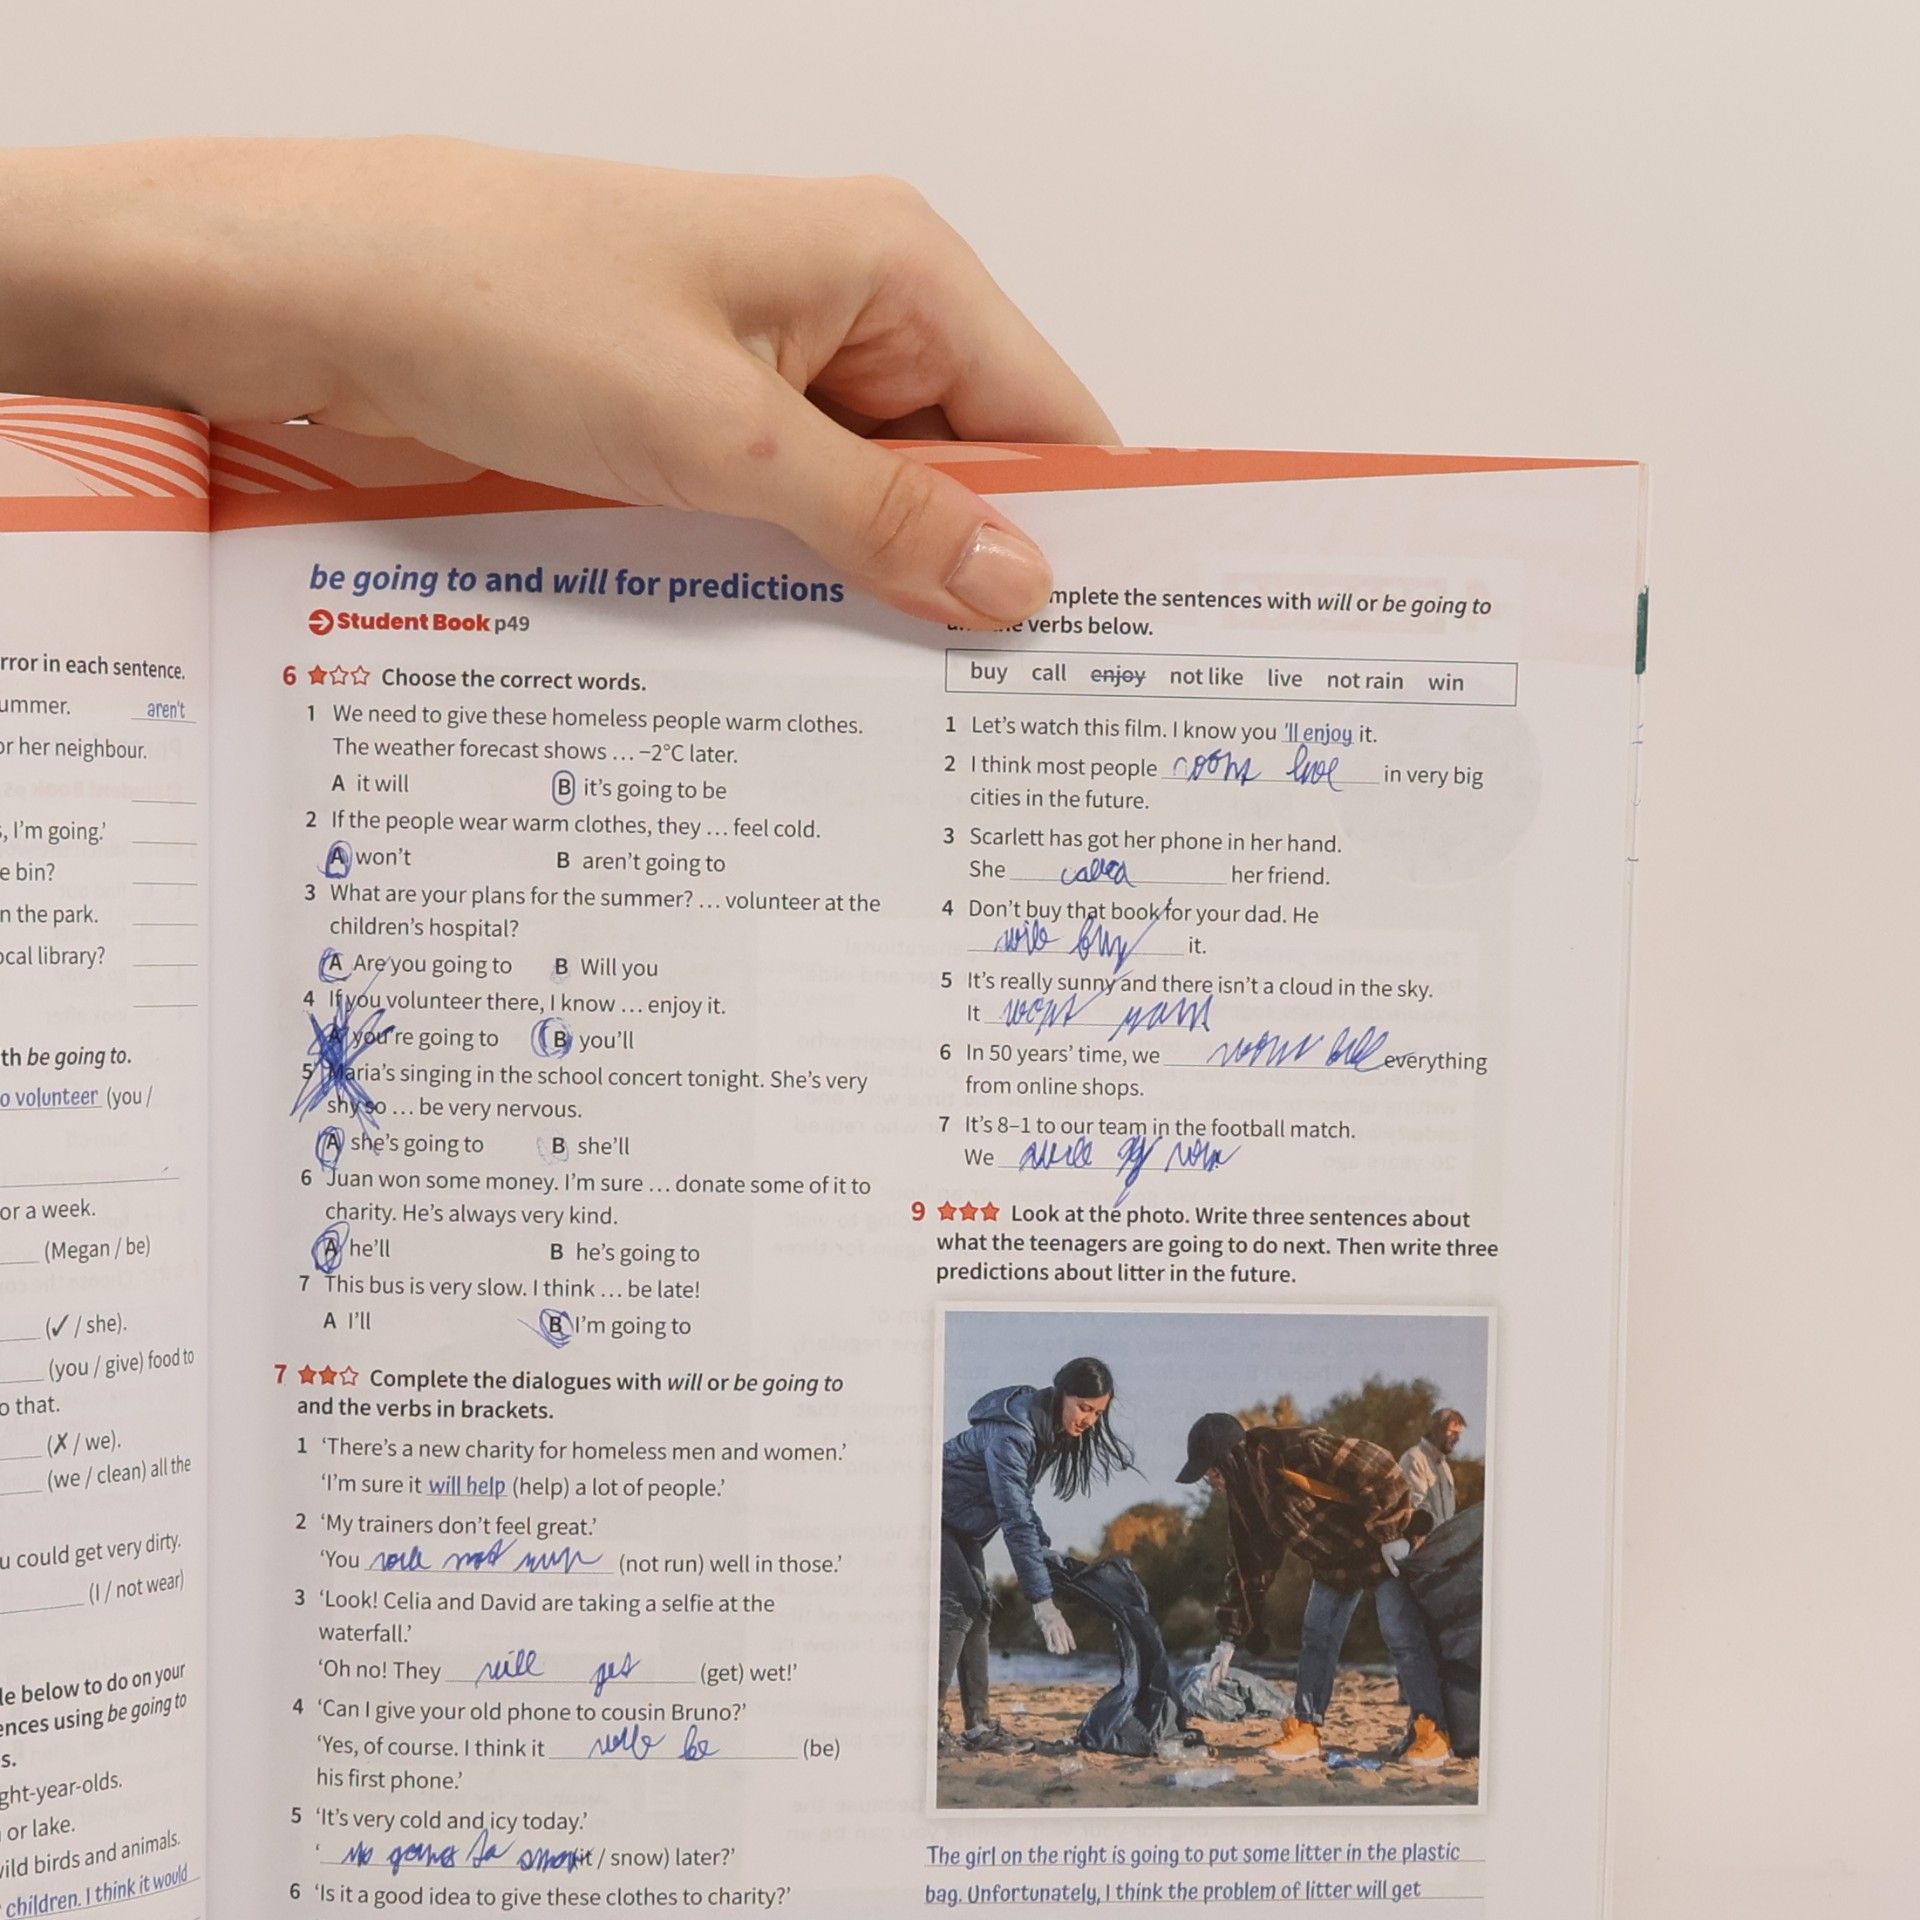 rror in each sentence.
ummer. aren't
or her neighbour.
, I'm going.'
e bin?
n the park.
ocal library?
th be going to.
o volunteer (you /
or a week.
(Megan / be)
(✓ / she).
(you / give) food to
o that.
(✗ / we).
(we / clean) all the
u could get very dirty.
(I / not wear)
le below to do on your
ences using be going to
s.
ght-year-olds.
or lake.
vild birds and animals.
children. I think it would
be going to and will for predictions
Student Book p49
6 Choose the correct words.
1 We need to give these homeless people warm clothes.
The weather forecast shows … −2°C later.
A it will B it's going to be
2 If the people wear warm clothes, they … feel cold.
A won't B aren't going to
3 What are your plans for the summer? … volunteer at the
children's hospital?
A Are you going to B Will you
4 If you volunteer there, I know … enjoy it.
A you're going to B you'll
5 Maria's singing in the school concert tonight. She's very
shy so … be very nervous.
A she's going to B she'll
6 Juan won some money. I'm sure … donate some of it to
charity. He's always very kind.
A he'll B he's going to
7 This bus is very slow. I think … be late!
A I'll B I'm going to
7 Complete the dialogues with will or be going to
and the verbs in brackets.
1 'There's a new charity for homeless men and women.'
'I'm sure it will help (help) a lot of people.'
2 'My trainers don't feel great.'
'You will not run (not run) well in those.'
3 'Look! Celia and David are taking a selfie at the
waterfall.'
'Oh no! They will get (get) wet!'
4 'Can I give your old phone to cousin Bruno?'
'Yes, of course. I think it will be (be)
his first phone.'
5 'It's very cold and icy today.'
' going to snow it / snow) later?'
6 'Is it a good idea to give these clothes to charity?'
mplete the sentences with will or be going to
verbs below.
buy call enjoy not like live not rain win
1 Let's watch this film. I know you 'll enjoy it.
2 I think most people live in very big
cities in the future.
3 Scarlett has got her phone in her hand.
She called her friend.
4 Don't buy that book for your dad. He
will buy it.
5 It's really sunny and there isn't a cloud in the sky.
It wont
6 In 50 years' time, we everything
from online shops.
7 It's 8–1 to our team in the football match.
We will win
9 Look at the photo. Write three sentences about
what the teenagers are going to do next. Then write three
predictions about litter in the future.
The girl on the right is going to put some litter in the plastic
bag. Unfortunately, I think the problem of litter will get